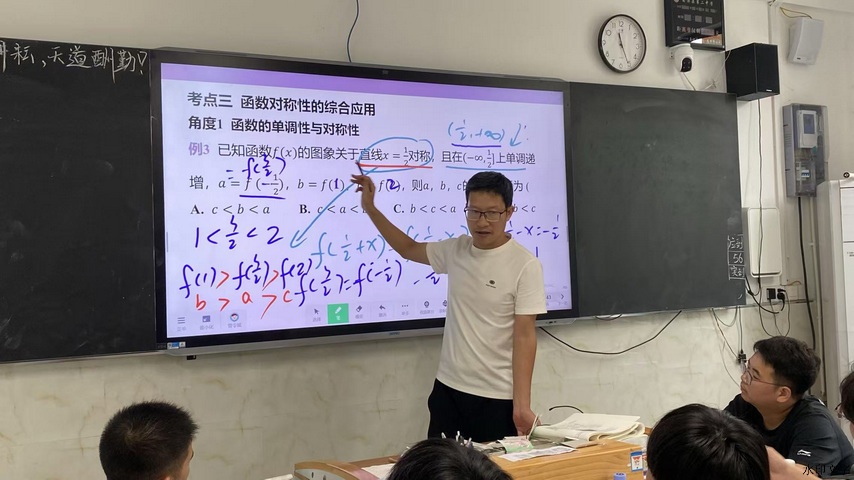 耘,天道酬勤!
考点三 函数对称性的综合应用
角度1 函数的单调性与对称性
(1/2,+∞)↓
例3 已知函数f(x)的图象关于直线x=1/2对称,且在(-∞,1/2]上单调递
=f(3/2)
增,a=f(-1/2),b=f(1), f(2),则a,b,c的 为(
A. c<b<a B. c<a< C. b<c<a <b<c
1<3/2<2
f(1/2+x)
f(1)>f(3/2)>f(2) f(3/2)=f(-1/2)
b>a>c
56
水印